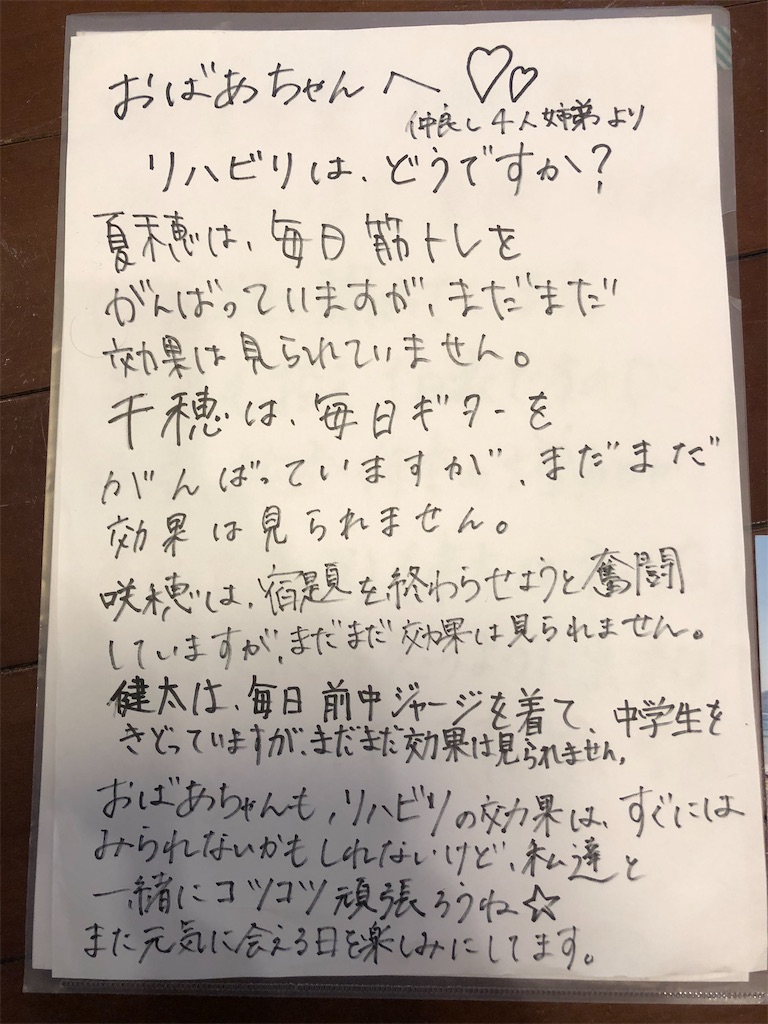 おばあちゃんへ ♡♡
仲良し4人姉弟より
リハビリは、どうですか?
夏穂は、毎日筋トレを
がんばっていますが、まだまだ
効果は見られていません。
千穂は、毎日ギターを
がんばっていますが、まだまだ
効果は見られません。
咲穂は、宿題を終わらせようと奮闘
していますが、まだまだ効果は見られません。
健太は、毎日前中ジャージを着て、中学生を
きどっていますが、まだまだ効果は見られません。
おばあちゃんも、リハビリの効果は、すぐには
みられないかもしれないけど、私達と
一緒にコツコツ頑張ろうね☆
また元気に会える日を楽しみにしてます。